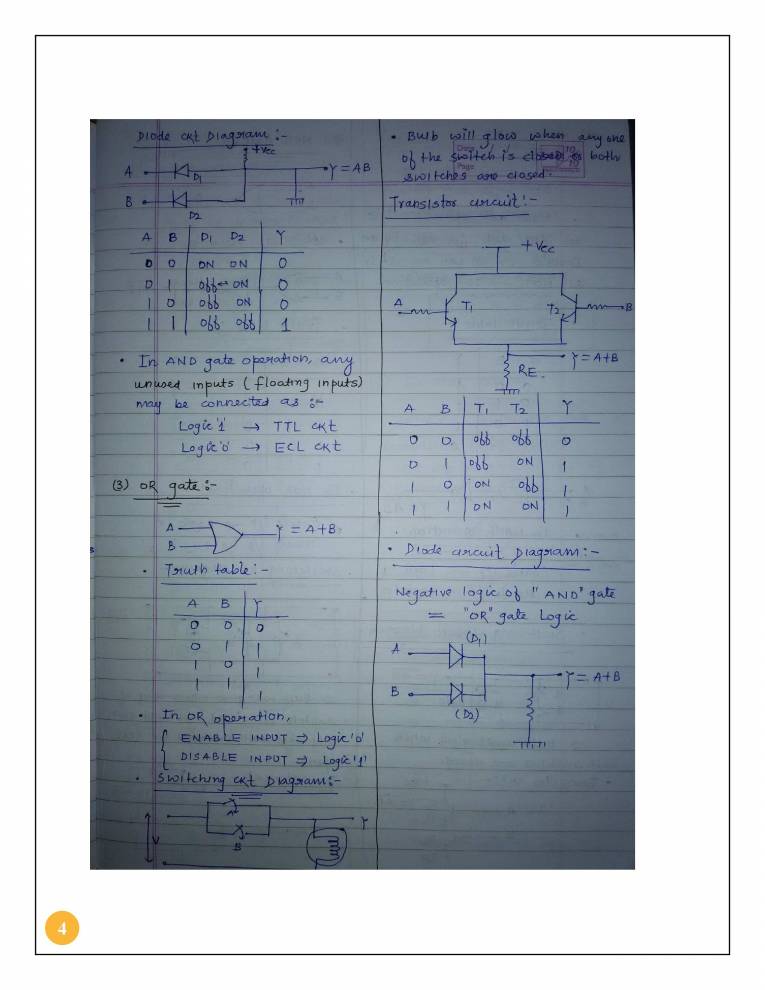 Diode ckt Diagram :-
+Vcc
A
D1
Y = AB
B
D2
A B D1 D2 Y
0 0 ON ON 0
0 1 off ↔ ON 0
1 0 off ON 0
1 1 off off 1
• In AND gate operation, any
unused inputs (floating inputs)
may be connected as :-
Logic '1' → TTL ckt
Logic '0' → ECL ckt
(3) OR gate :-
A
B
Y = A+B
• Truth table :-
A B Y
0 0 0
0 1 1
1 0 1
1 1 1
• In OR operation,
ENABLE INPUT ⇒ Logic '0'
DISABLE INPUT ⇒ Logic '1'
• Switching ckt Diagram :-
A
B
V
Y
• Bulb will glow when any one
of the switch is closed or both
switches are closed.
Date
Page
Transistor circuit :-
+Vcc
A
T1
T2
B
Y = A+B
RE
A B T1 T2 Y
0 0 off off 0
0 1 off ON 1
1 0 ON off 1
1 1 ON ON 1
• Diode circuit Diagram :-
Negative logic of "AND" gate
= "OR" gate Logic
(D1)
A
Y = A+B
B
(D2)
4